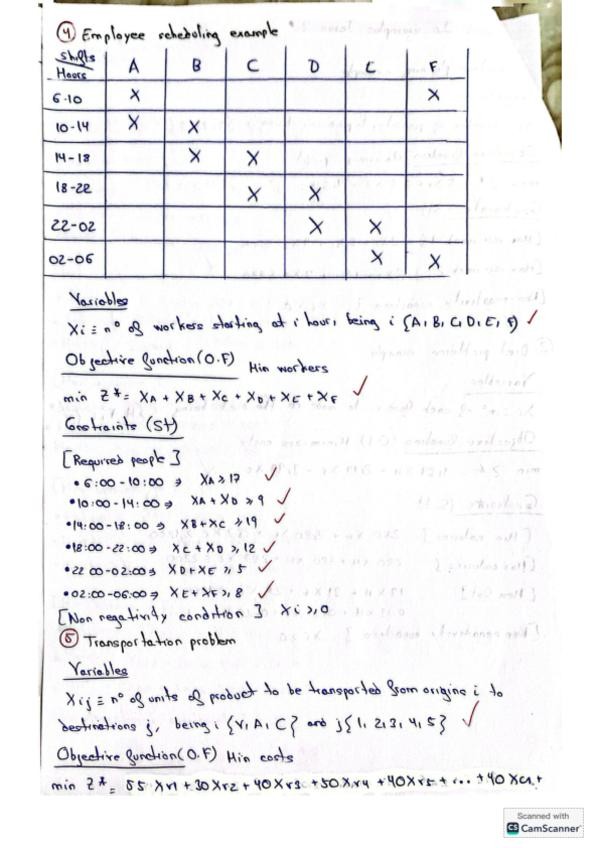 4 Employee scheduling example
Shifts A B C D E F
Hours
6-10 X X
10-14 X X
14-18 X X
18-22 X X
22-02 X X
02-06 X X
Variables
Xi ≡ nº of workers starting at i hour, being i {A, B, C, D, E, F} ✓
Objective function (O.F) Min workers
min Z* = XA + XB + XC + XD + XE + XF ✓
Constraints (St)
[Required people]
• 6:00 - 10:00 ⇒ XA ≥ 17 ✓
• 10:00 - 14:00 ⇒ XA + XD ≥ 9 ✓
• 14:00 - 18:00 ⇒ XB + XC ≥ 19 ✓
• 18:00 - 22:00 ⇒ XC + XD ≥ 12 ✓
• 22 00 - 02:00 ⇒ XD + XE ≥ 5 ✓
• 02:00 - 06:00 ⇒ XE + XF ≥ 8 ✓
[Non negativity condition] Xi ≥ 0
5 Transportation problem
Variables
Xij ≡ nº of units of product to be transported from origins i to
destinations j, being i {V, A, C} and j {1, 2, 3, 4, 5} ✓
Objective function (O.F) Min costs
min Z* = 55 Xv1 + 30 Xv2 + 40 Xv3 + 50 Xv4 + 40 Xv5 + ... + 40 Xc1 +
Scanned with
CS CamScanner